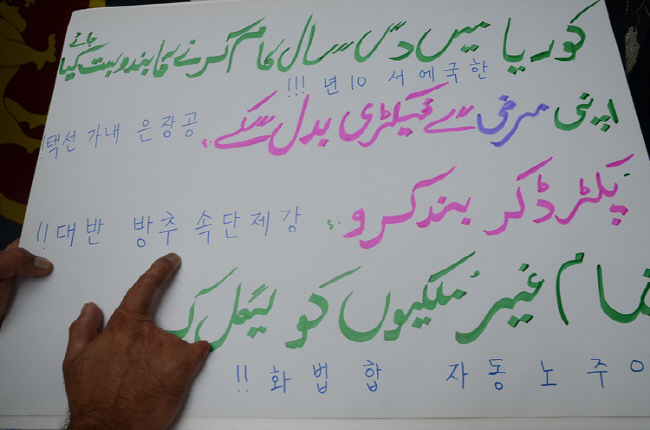 کوریا میں دس سال کام کرنے کا بندوبست کیا جائے
한국에서 10년 !!!
اپنی مرضی سے فیکٹری بدل سکے
공장은 내가 선택!
پکڑ دکڑ بند کرو
강제단속 추방 반대!!
تمام غیر ملکیوں کو لیگل
주노동자 합법화!!